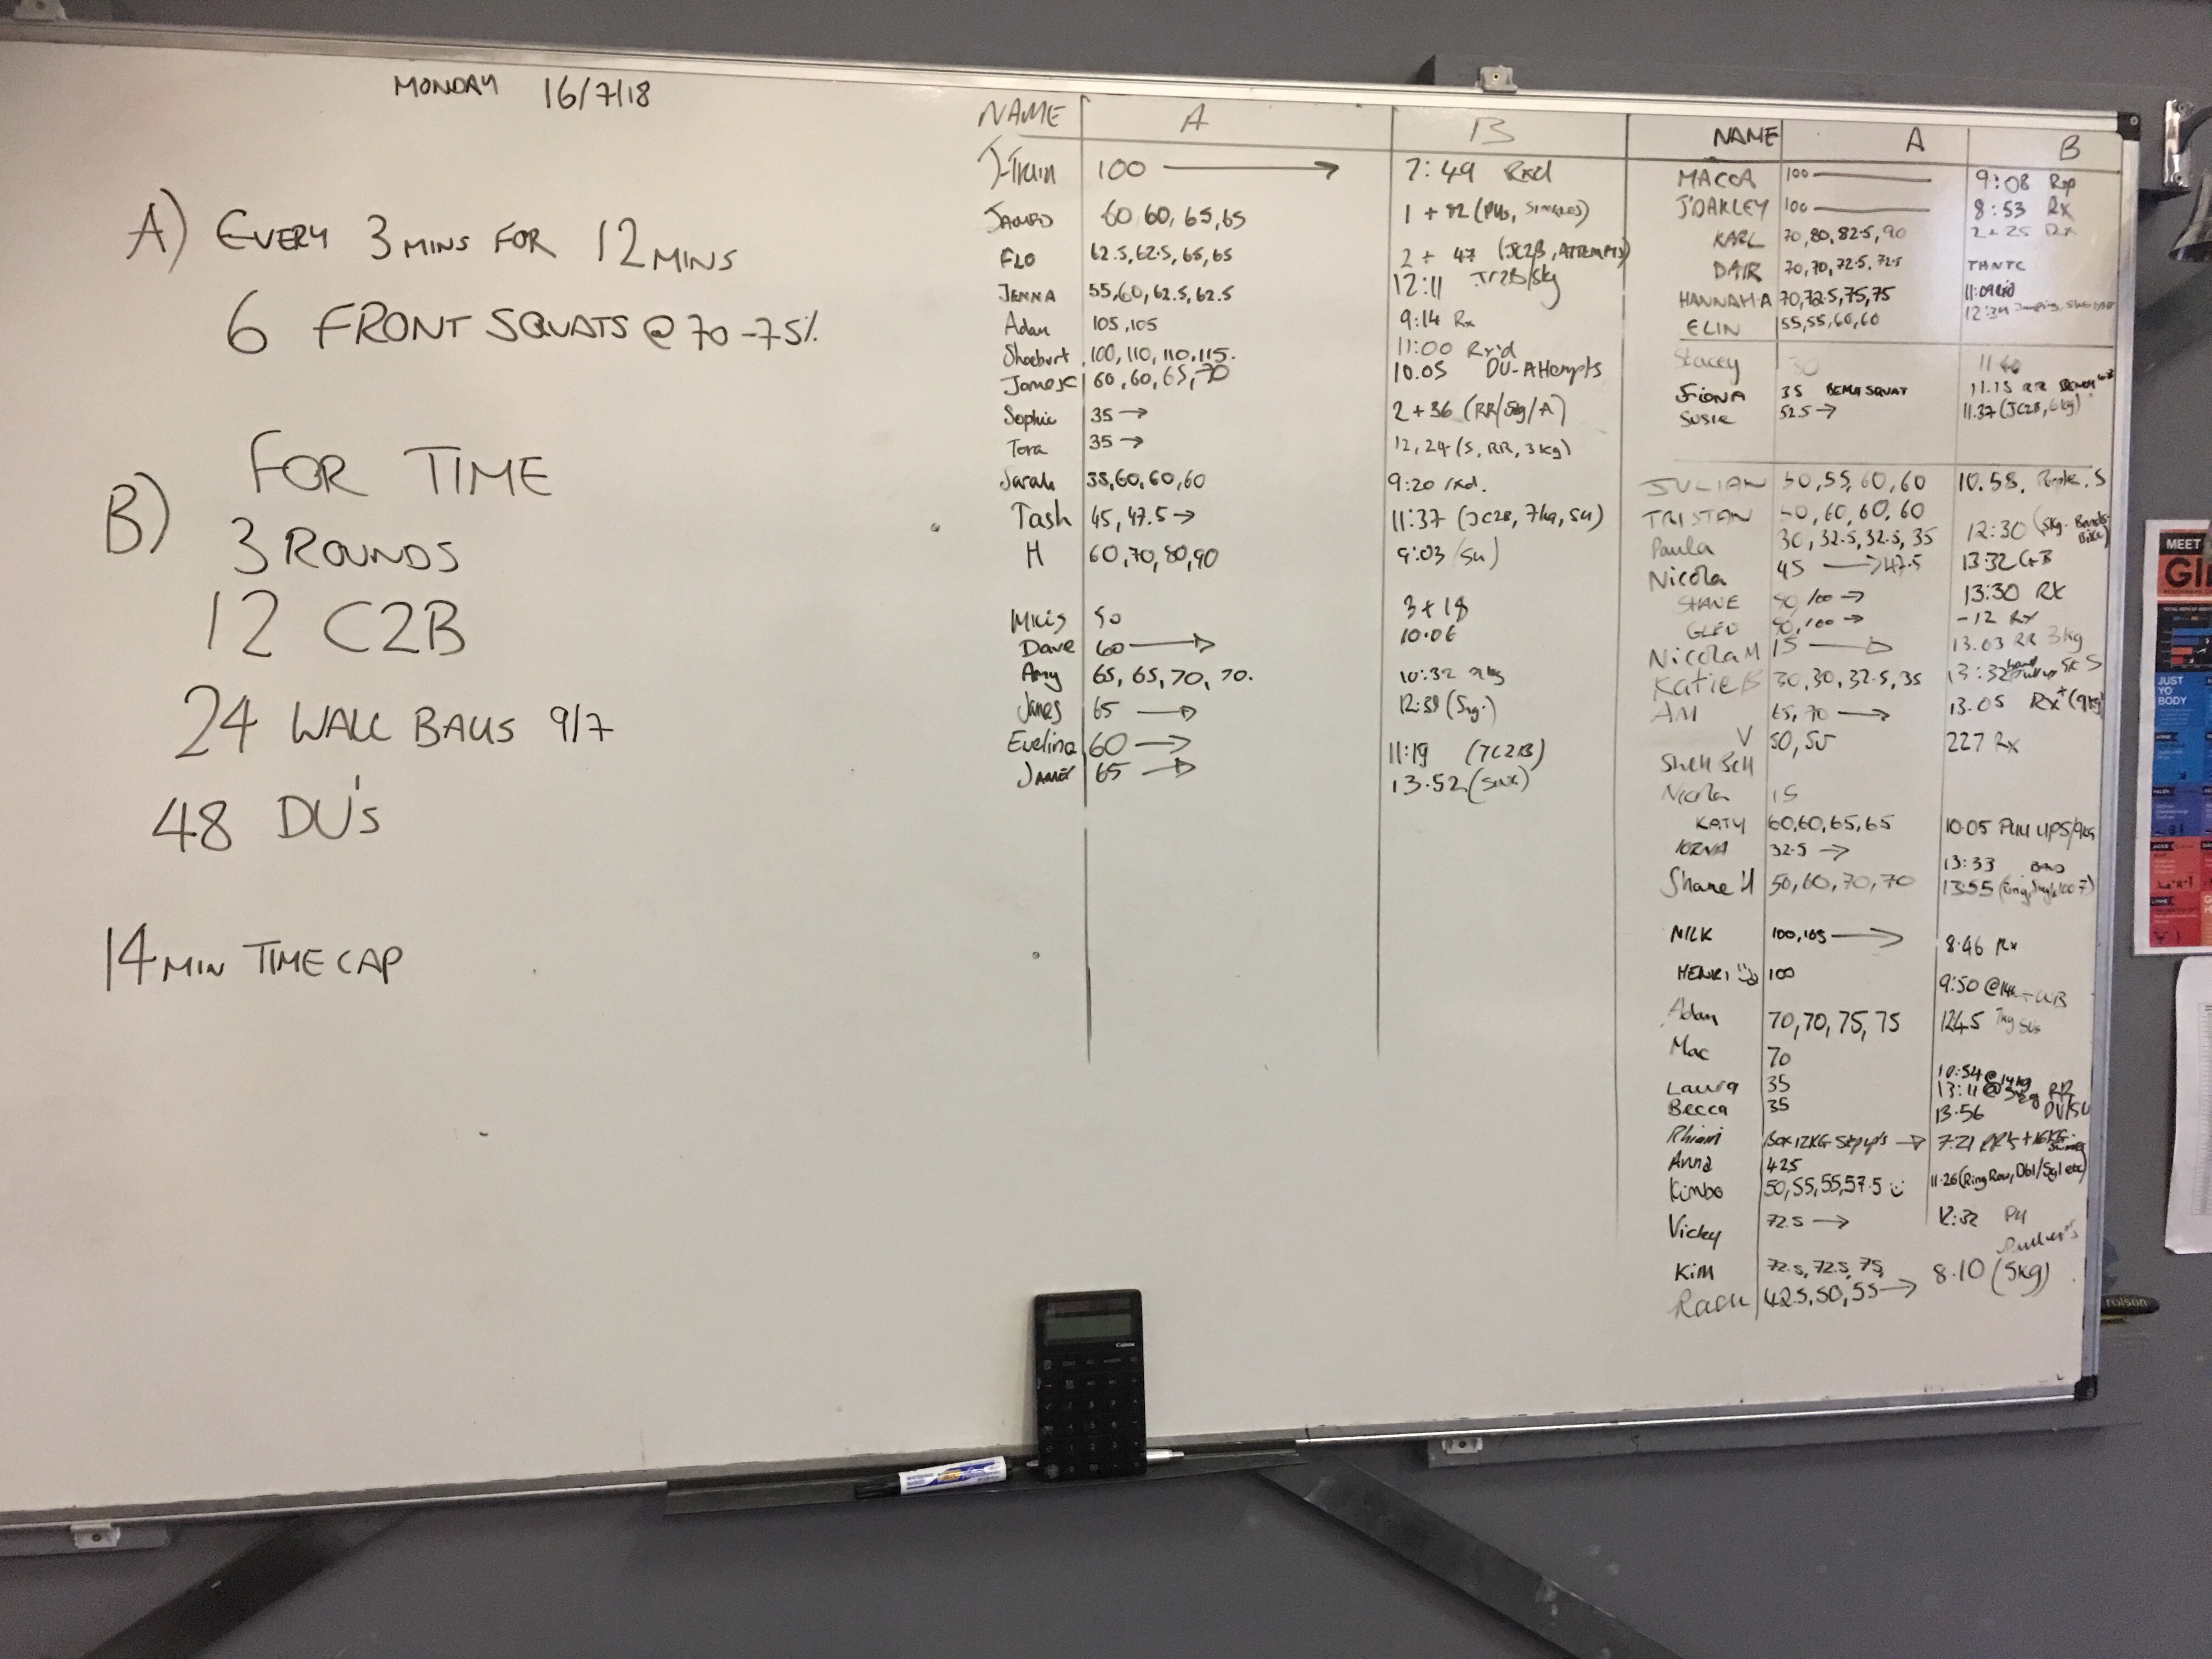 MONDAY 16/7/18
A) EVERY 3 MINS FOR 12 MINS
6 FRONT SQUATS @ 70-75%
B) FOR TIME
3 ROUNDS
12 C2B
24 WALL BALLS 9/7
48 DU's
14 MIN TIME CAP
NAME A B
J-Train 100 → 7:49 Rxd
60, 60, 65, 65 1 + 12 (PUs, SINGLES)
FLO 62.5, 62.5, 65, 65 2 + 47 (JC2B, ATTEMPTS)
JENNA 55, 60, 62.5, 62.5 12:11
Adam 105, 105 9:14 Rx
100, 110, 110, 115. 11:00 Rx'd
60, 60, 65, 70 10.05 DU-Attempts
Sophie 35 → 2 + 36 (RR/5kg/A)
Tora 35 → 12,24 (S, RR, 3kg)
Sarah 60, 60, 60 9:20 rxd.
Tash 45, 47.5 → 11:37 (JC2B, 7kg, SU)
H 60, 70, 80, 90 9:03 (SU)
50 3 + 18
Dave 60 → 10:06
Amy 65, 65, 70, 70. 10:32 9kg
James 65 →
Evelina 60 → 11:19 (JC2B)
65 → 13.52
NAME A B
MACCA 100 9:08
J'OAKLEY 100 8:53 Rx
KARL 70, 80, 82.5, 90 2+25 Rx
70, 70, 72.5, 72.5
HANNAH.A 70, 72.5, 75, 75 11:09
ELIN 55, 55, 60, 60
Stacey 30
FIONA 35 SQUAT 11.15 RR
SUSIE 52.5 → 11.37 (JC2B, 6kg)
JULIAN 50, 55, 60, 60 10.58.
TRISTAN 50, 60, 60, 60 12:30
Paula 30, 32.5, 32.5, 35 13:32 GB
Nicola 45 → 47.5
SHANE 100 → 13:30 RX
100 → -12 Rx
Nicola M 15 → 13.03 RR 3kg
Katie B 30, 30, 32.5, 35 13:32
AM 65, 70 → 13.05 Rx+ (9kg)
V 50, 55 227 Rx
Nicola 15
KATY 60, 60, 65, 65 10.05 PULL UPS/9kg
32.5 → 13:33
Shane H 50, 60, 70, 70 13:55
MILK 100, 105 → 8:46 Rx
HENRI 100 9:50
Adam 70, 70, 75, 75 1245 7kg SUs
Mac 70 10:54 @14kg
Laura 35 13:11 @ 3kg RR
Becca 35 13.56 DU/SU
BOX 12KG Step up's → 7:21
Anna 425
Kimbo 50, 55, 55, 57.5 11.26 (Ring Row, Dbl/Sgl etc)
Vicky 72.5 → 12:32
KIM 72.5, 72.5, 75, 8.10 (5kg)
42.5, 50, 55 →
Canon
MEET
JUST
YO
BODY